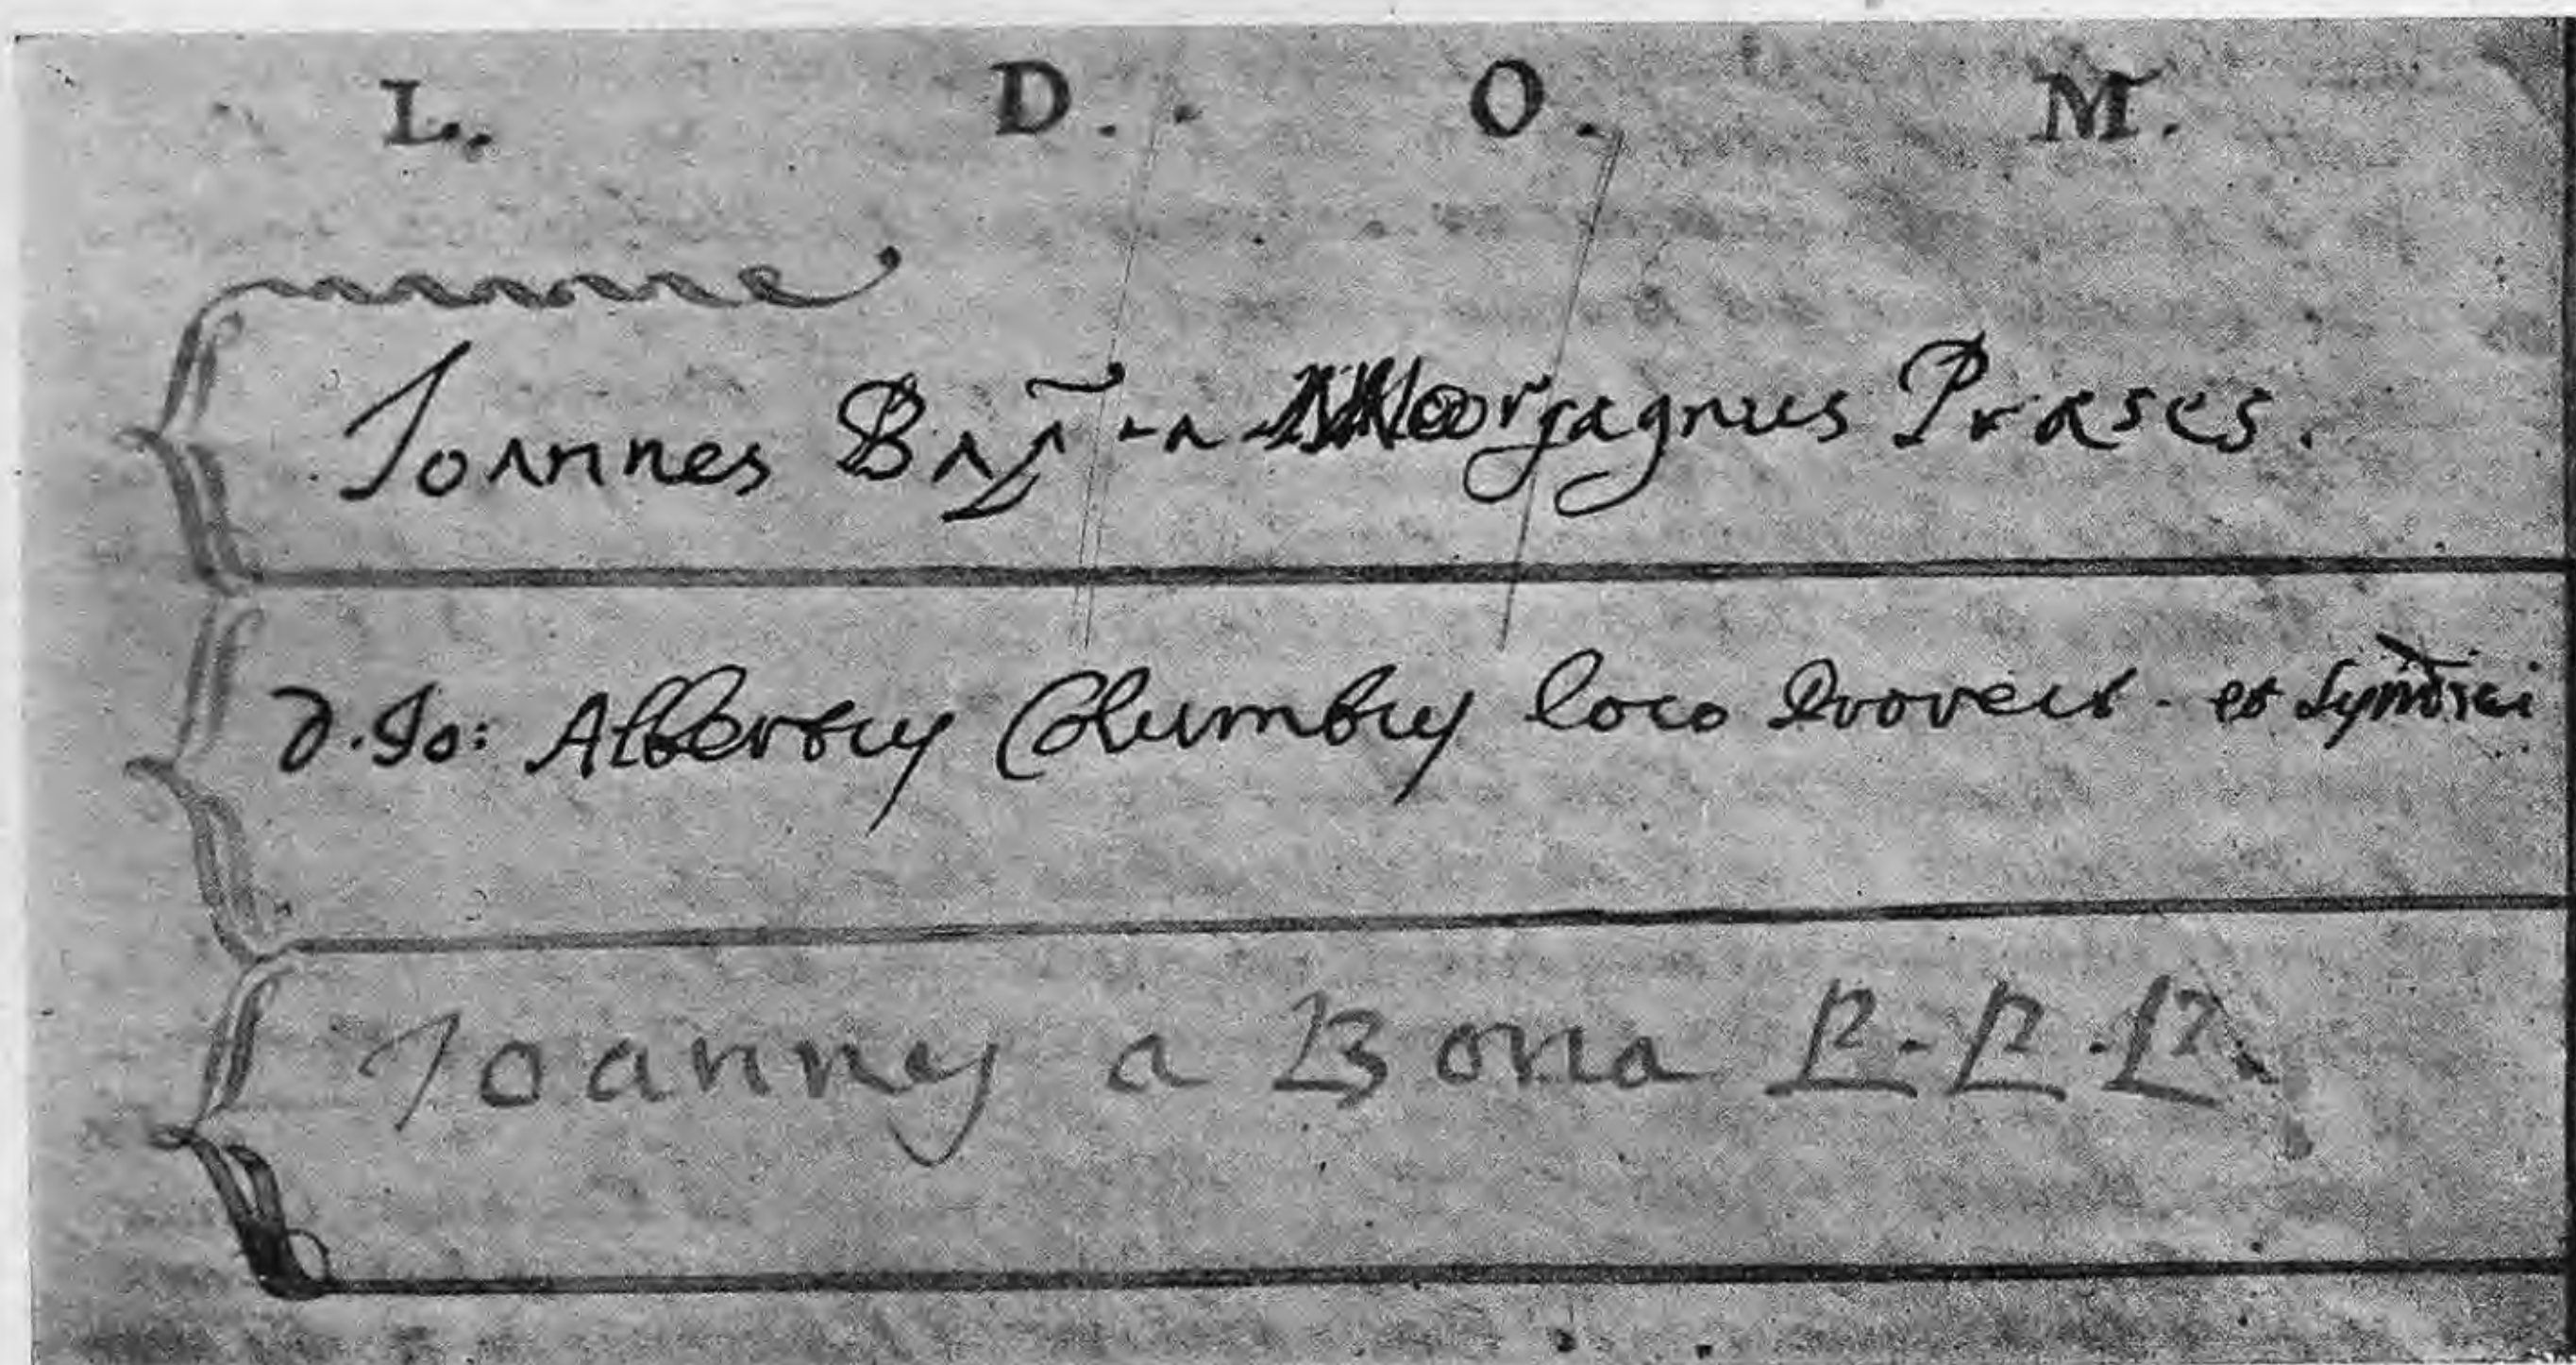 L. D. O. M.
Joannes Bapt̃a Morgagnus Præses.
D. Jo: Albertus Columbus loco Provect. et Syndici
Joannes a Bona P. P. P.